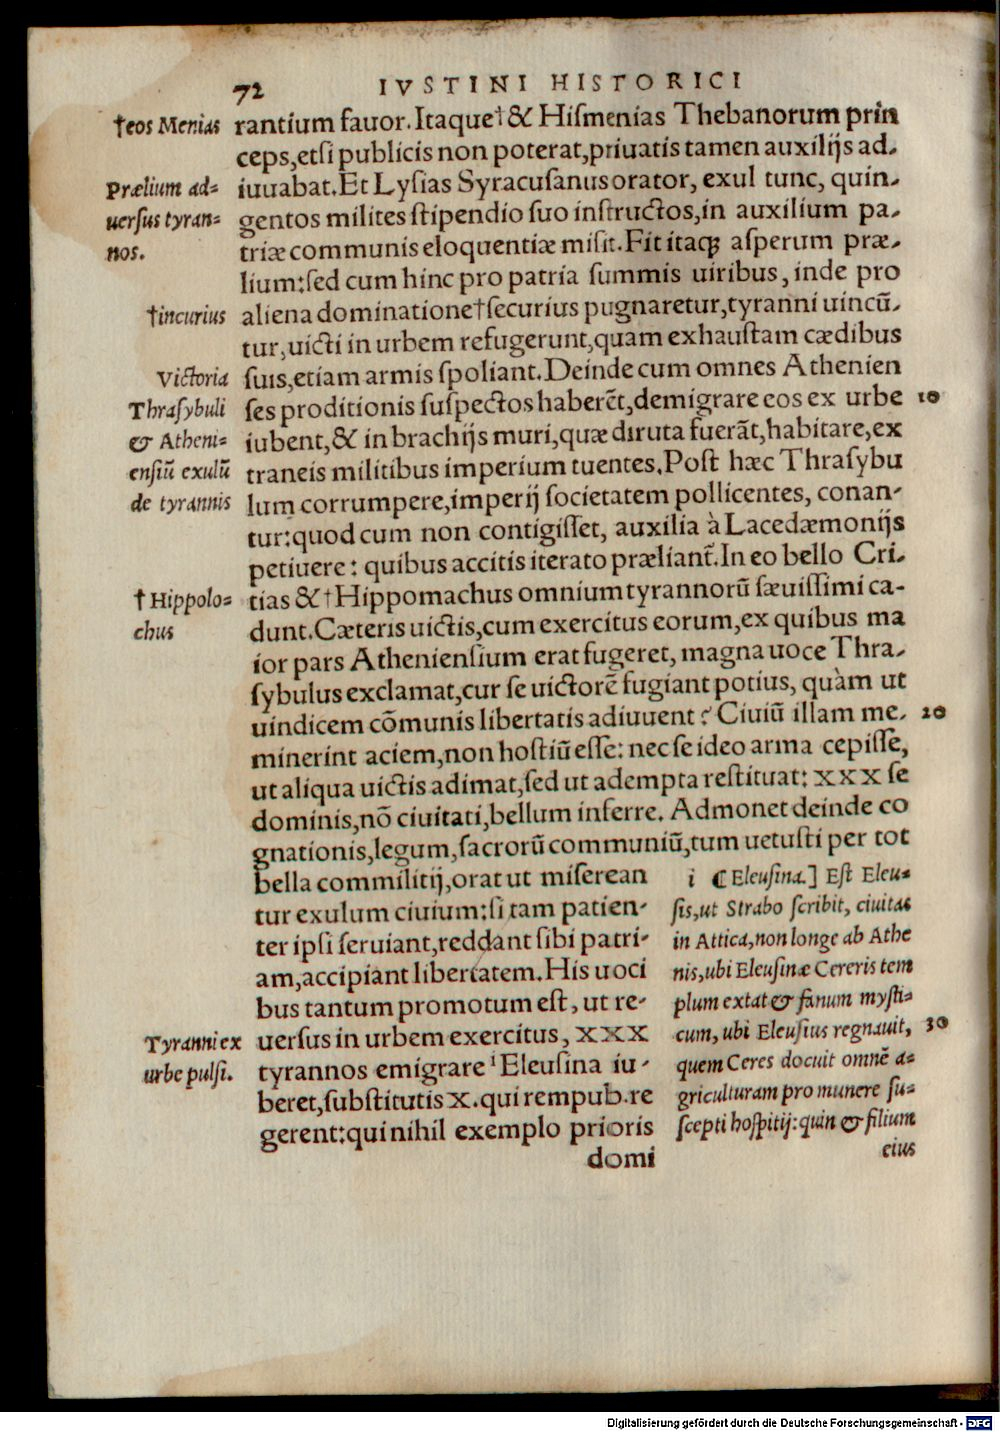 72 IVSTINI HISTORICI
†eos Menias
rantium fauor. Itaque† & Hiſmenias Thebanorum prin
ceps, etſi publicis non poterat, priuatis tamen auxilijs ad-
Prælium ad=
uerſus tyran=
nos.
iuuabat. Et Lyſias Syracuſanus orator, exul tunc, quin-
gentos milites ſtipendio ſuo inſtructos, in auxilium pa-
triæ communis eloquentiæ miſit. Fit itaqꝫ aſperum præ-
lium: ſed cum hinc pro patria ſummis uiribus, inde pro
†incurius
aliena dominatione†ſecurius pugnaretur, tyranni uincū-
tur, uicti in urbem refugerunt, quam exhauſtam cædibus
Victoria
Thraſybuli
& Atheni=
enſiū exulū
de tyrannis
ſuis, etiam armis ſpoliant. Deinde cum omnes Athenien
ſes proditionis ſuſpectos haberēt, demigrare eos ex urbe 10
iubent, & in brachijs muri, quæ diruta fuerāt, habitare, ex
traneis militibus imperium tuentes. Poſt hæc Thraſybu
lum corrumpere, imperij ſocietatem pollicentes, conan-
tur: quod cum non contigiſſet, auxilia à Lacedæmonijs
petiuere: quibus accitis iterato prælianť. In eo bello Cri-
†Hippolo=
chus
tias &†Hippomachus omnium tyrannorū ſæuiſſimi ca-
dunt. Cæteris uictis, cum exercitus eorum, ex quibus ma
ior pars Athenienſium erat fugeret, magna uoce Thra-
ſybulus exclamat, cur ſe uictorē fugiant potius, quàm ut
uindicem cōmunis libertatis adiuuent? Ciuiū illam me- 20
minerint aciem, non hoſtiū eſſe: nec ſe ideo arma cepiſſe,
ut aliqua uictis adimat, ſed ut adempta reſtituat: XXX ſe
dominis, nō ciuitati, bellum inferre. Admonet deinde co
gnationis, legum, ſacrorū communiū, tum uetuſti per tot
bella commilitij, orat ut miſerean
tur exulum ciuium: ſi tam patien-
ter ipſi ſeruiant, reddant ſibi patri-
am, accipiant libertatem. His uoci
bus tantum promotum eſt, ut re-
Tyranni ex
urbe pulſi.
uerſus in urbem exercitus, XXX
tyrannos emigrare ⁱEleuſina iu-
beret, ſubſtitutis X. qui rempub. re
gerent: qui nihil exemplo prioris
domi
i ⁋Eleuſina.] Eſt Eleu=
ſis, ut Strabo ſcribit, ciuitas
in Attica, non longe ab Athe
nis, ubi Eleuſinæ Cereris tem
plum extat & fanum myſti=
cum, ubi Eleuſius regnauit, 30
quem Ceres docuit omnē a=
griculturam pro munere ſu=
ſcepti hoſpitij: quin & filium
eius
Digitalisierung gefördert durch die Deutsche Forschungsgemeinschaft - DFG